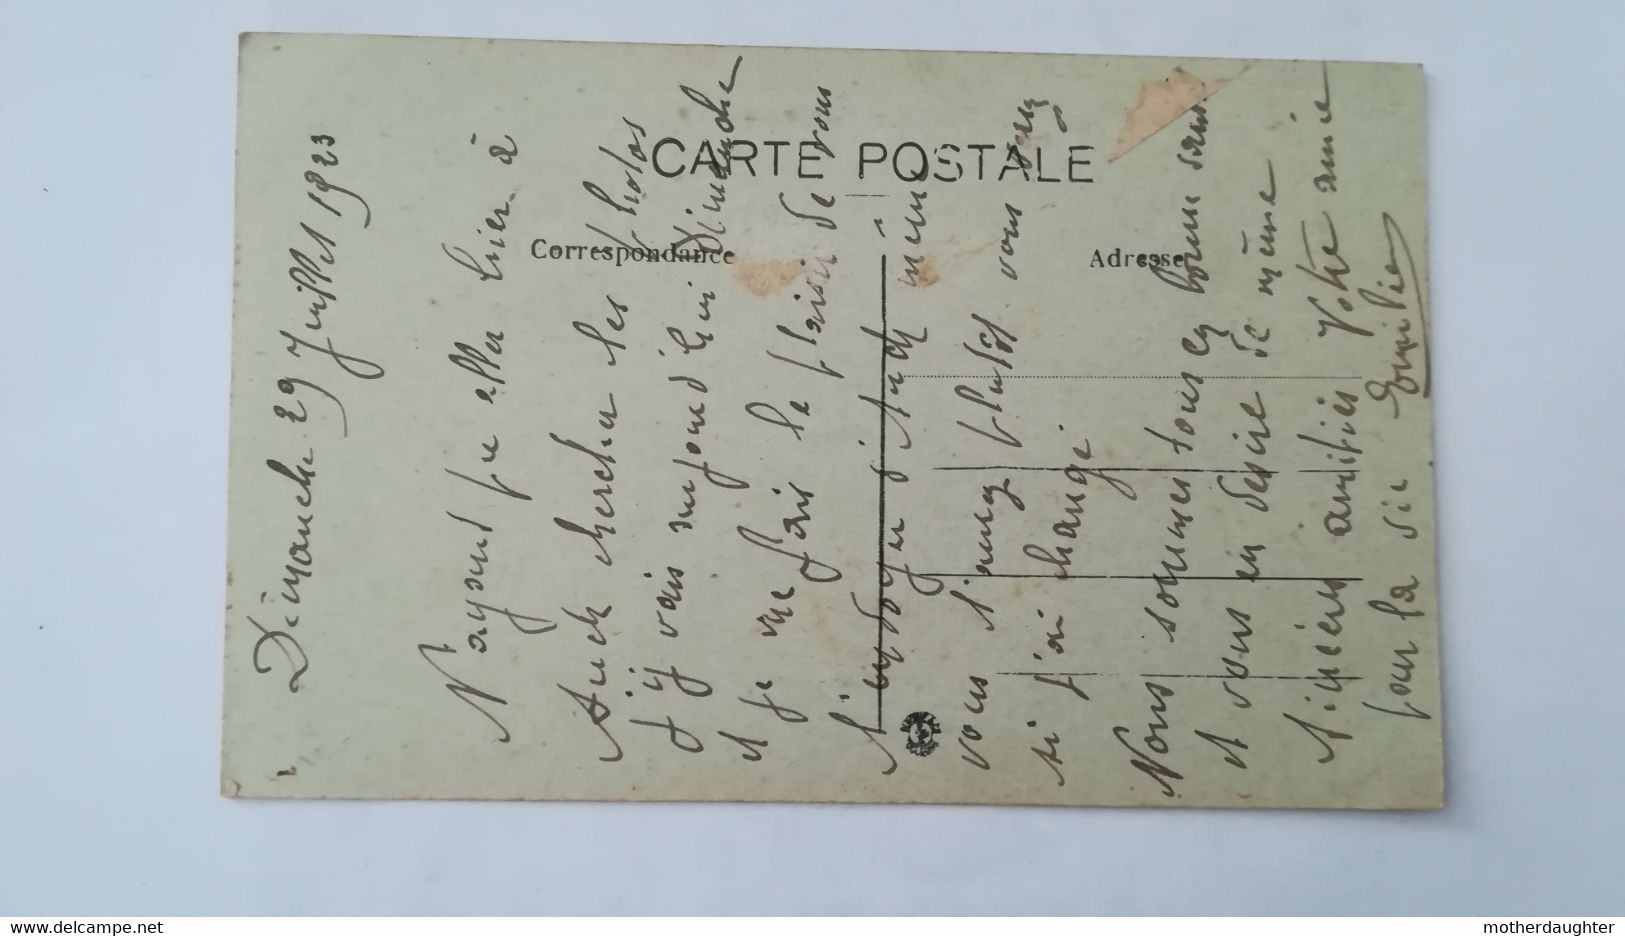 CARTE POSTALE
Correspondance
Adresse
Dimanche 29 Juillet 1923
N'ayant pu aller hier à
Auch chercher les photos
j'y vais aujourd'hui Dimanche
et je me fais le plaisir de vous
vous plutôt vous
si j'ai changé
Nous sommes tous en bonne santé
et vous en désire de même
Sincères amitiés Votre amie
pour la vie
www.delcampe.net
motherdaughter